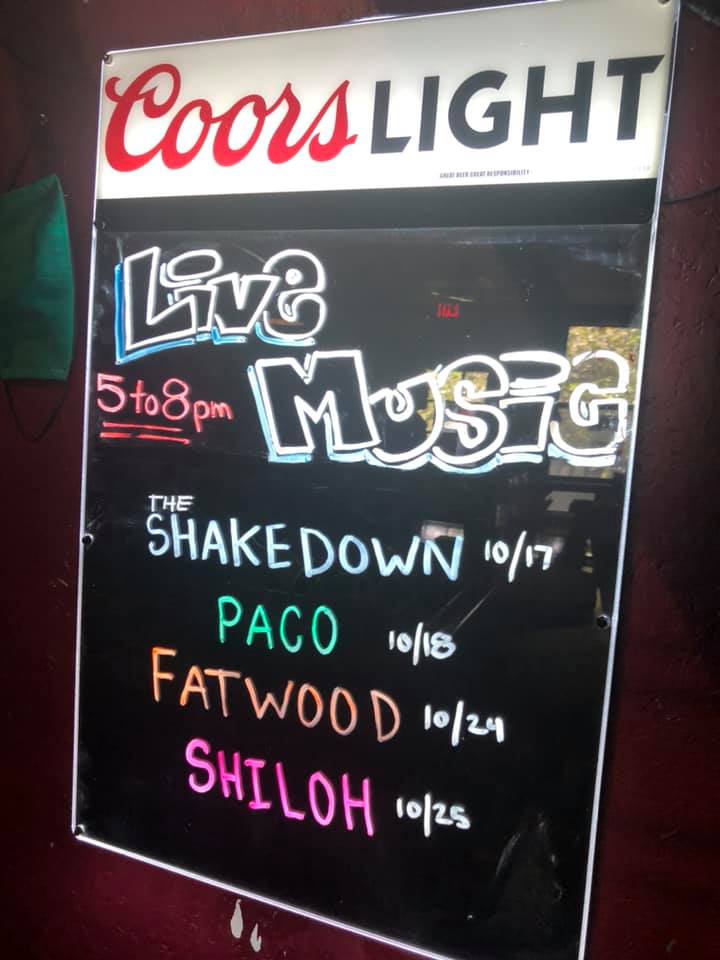 Coors LIGHT
GREAT BEER GREAT RESPONSIBILITY
Live
Music
5 to 8pm
THE
SHAKEDOWN 10/17
PACO 10/18
FATWOOD 10/24
SHILOH 10/25